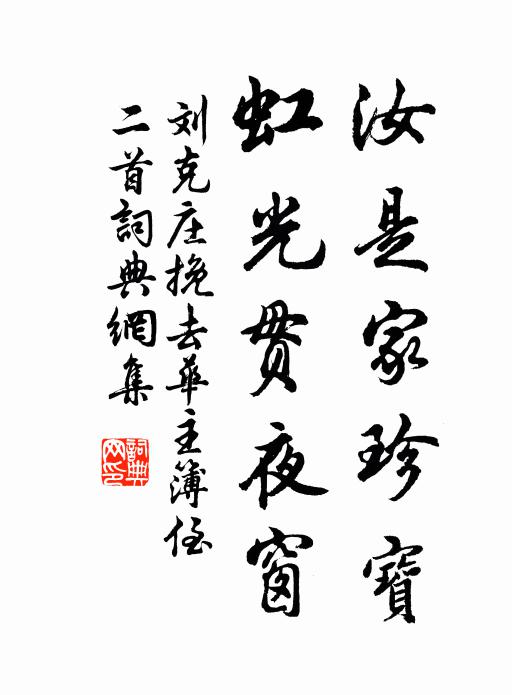 汝是家珍寶
虹光贯夜窗
刘克庄挽去華主簿侄
二首詞典網集
詞典网印